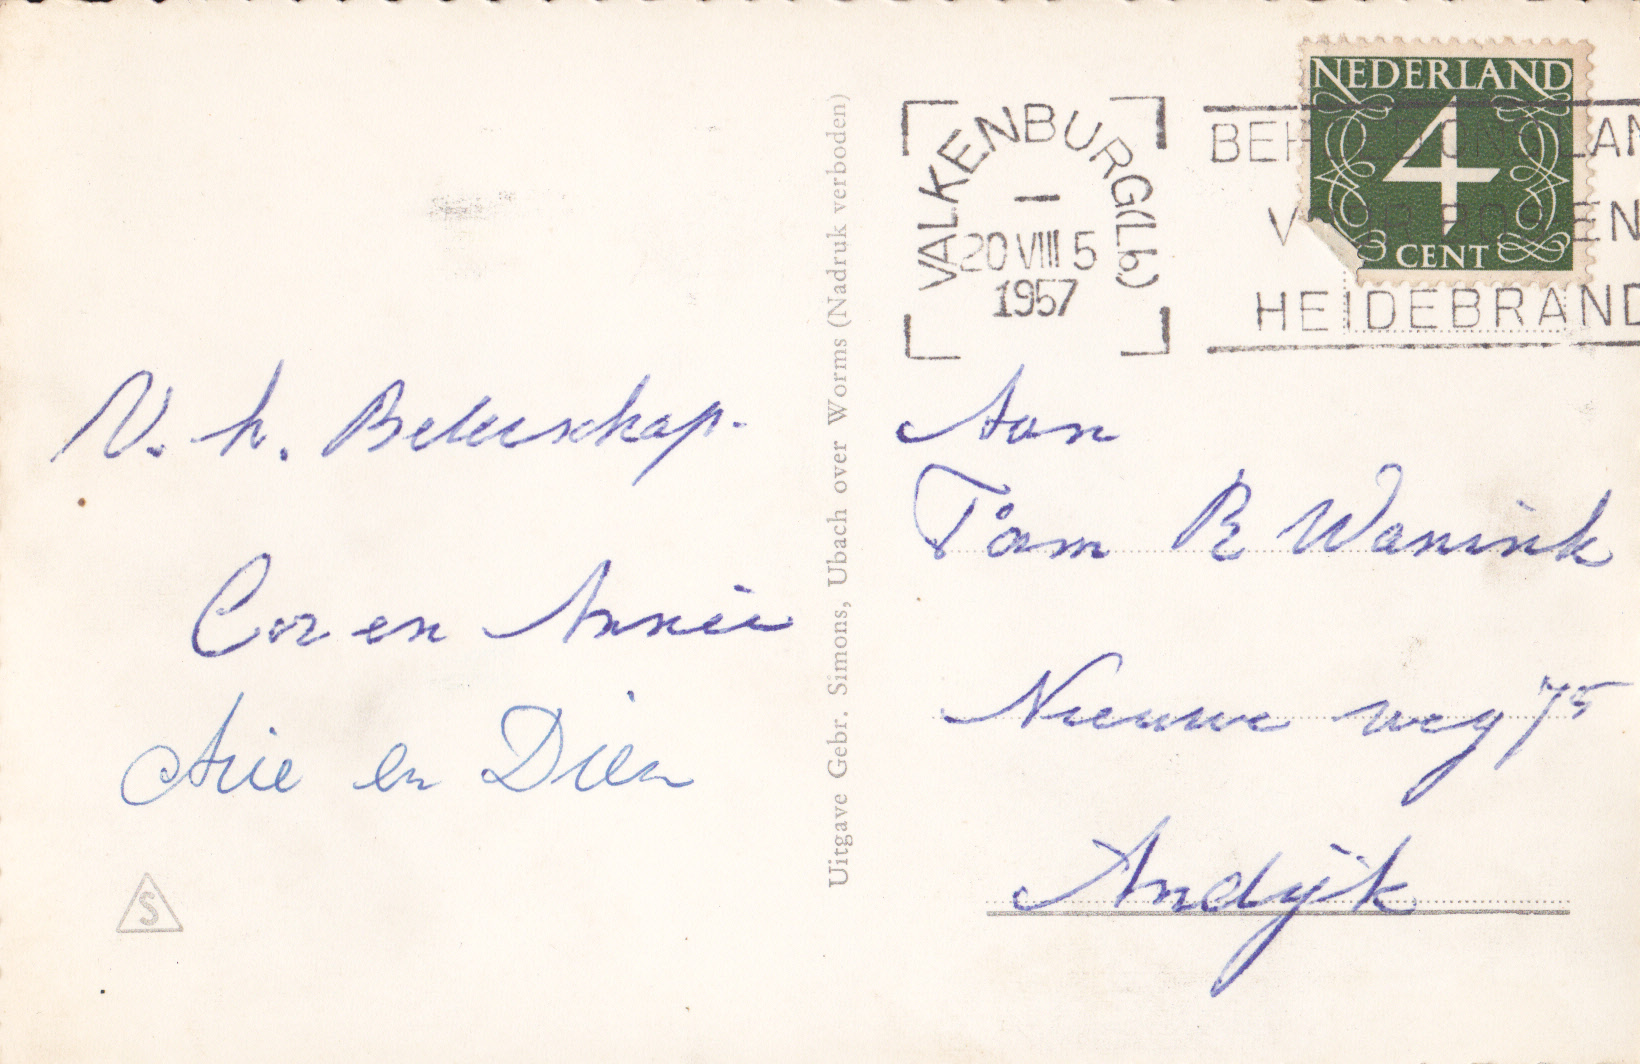 VALKENBURG (Lb)
20 VIII 5
1957
NEDERLAND
4
CENT
HEIDEBRAND
V. h. Beleeschap.
Cor en Annie
Arie en Dien
S
Uitgave Gebr. Simons, Ubach over Worms (Nadruk verboden)
Aan
Fam R Wanink
Nieuwe weg 75
Andijk